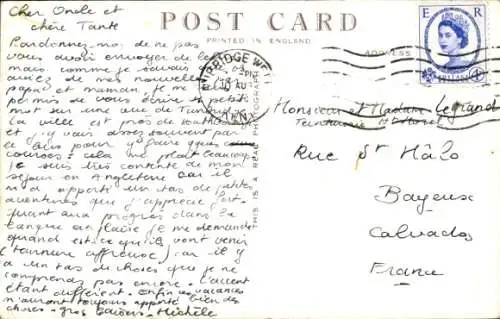 POST CARD
PRINTED IN ENGLAND
ADDRESS
THIS IS A REAL PHOTOGRAPH
E R
BRIDGE WE
PM
KENT
Cher Oncle et
chère Tante
Pardonnez-moi de ne pas
vous avoir envoyer de
mais comme je savais
aviez de mes nouvelles
papa et maman je me
permis de vous écrire
petit
mot sur une vue de
La ville est près de
et j'y vais assez souvent par
le bus pour y faire que
courses: cela me plait beaucoup
Je suis très contente de mon
séjour en Angleterre car il
m'a apporté un tas de petites
aventures que j'apprécie fort.
Quant aux progrès dans la
langue anglaise je me demande
quand est-ce qu'ils vont venir
(tournure affreuse) car il y
a un tas de choses que je ne
comprends pas encore. L'accent
étant différent. Enfin ces vacances
m'auront toujours apporté bien des
choses - gros baisers - Michèle
Monsieur et Madame Legrand
Teinturerie
Rue St Malo
Bayeux
Calvados
France